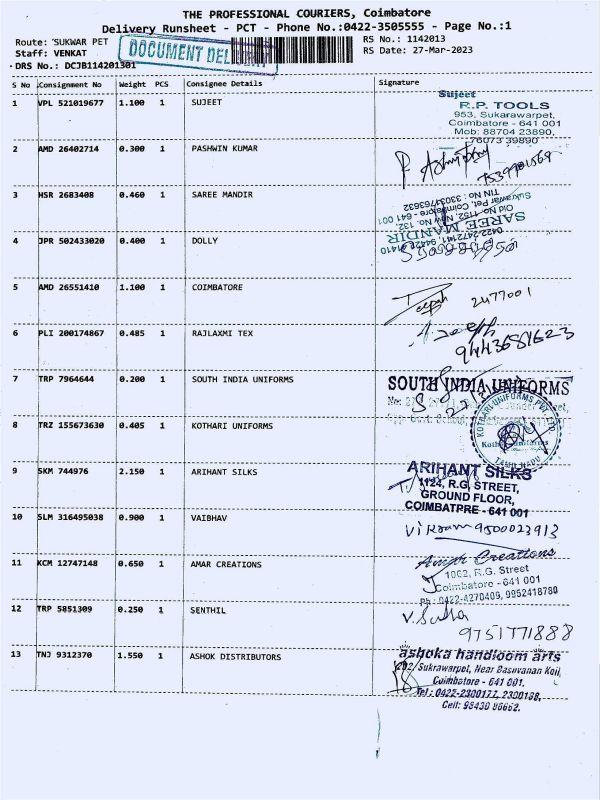 THE PROFESSIONAL COURIERS, Coimbatore
Delivery Runsheet - PCT - Phone No.:0422-3505555 - Page No.:1
Route: SUKWAR PET
RS No.: 1142013
Staff: VENKAT
RS Date: 27-Mar-2023
DRS No.: DCJB114201301
DOCUMENT DEL
S No Consignment No Weight PCS Consignee Details Signature
1 VPL 521019677 1.100 1 SUJEET
Sujeet
R.P. TOOLS
953, Sukarawarpet,
Coimbatore - 641 001
Mob: 88704 23890,
76073 39890
2 AMD 26402714 0.300 1 PASHWIN KUMAR
7539901569
3 HSR 2683408 0.460 1 SAREE MANDIR
SAREE MANDIR
Old No. 1152, New No. 132,
Sukrawar Pet, Coimbatore - 641 001
TIN No : 33034763632
4 JPR 502433020 0.400 1 DOLLY
5 AMD 26551410 1.100 1 COIMBATORE
Deepak 2477001
6 PLI 200174867 0.485 1 RAJLAXMI TEX
9443681623
7 TRP 7964644 0.200 1 SOUTH INDIA UNIFORMS
SOUTH INDIA UNIFORMS
8 TRZ 155673630 0.405 1 KOTHARI UNIFORMS
KOTHARI UNIFORMS PVT. LTD.
TAMIL NADU
9 SKM 744976 2.150 1 ARIHANT SILKS
ARIHANT SILKS
1124, R.G. STREET,
GROUND FLOOR,
COIMBATPRE - 641 001
10 SLM 316495038 0.900 1 VAIBHAV
Vikram 9500023913
11 KCM 12747148 0.650 1 AMAR CREATIONS
Amar Creations
1002, R.G. Street
Coimbatore - 641 001
Ph : 0422-4270409, 9952418780
12 TRP 5851309 0.250 1 SENTHIL
9751771888
13 TNJ 9312370 1.550 1 ASHOK DISTRIBUTORS
ashoka handloom arts
Sukrawarpet, Near Basuvanan Koil,
Coimbatore - 641 001.
Tel : 0422-2300177, 2300188,
Cell: 98430 86662.